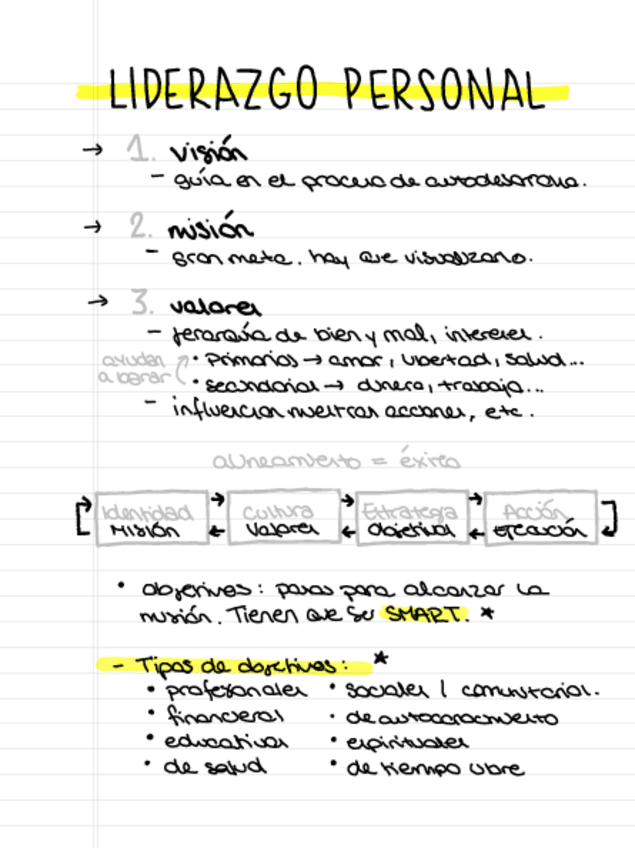 LIDERAZGO PERSONAL
→ 1. visión
- guía en el proceso de autodesarrollo.
→ 2. misión
- gran meta. hay que visualizarlo.
→ 3. valores
- jerarquía de bien y mal, intereses.
• Primarios → amor, libertad, salud...
ayudan a lograr
• secundarios → dinero, trabajo...
- influencian nuestras acciones, etc.
alineamiento = éxito
Identidad Cultura Estrategia Acción
Misión Valores Objetivos ejecución
• objetivos: pasos para alcanzar la
misión. Tienen que ser SMART. *
- Tipos de objetivos: *
• profesionales • sociales / comunitarios.
• financieros • de autoconocimiento
• educativos • espirituales
• de salud • de tiempo libre